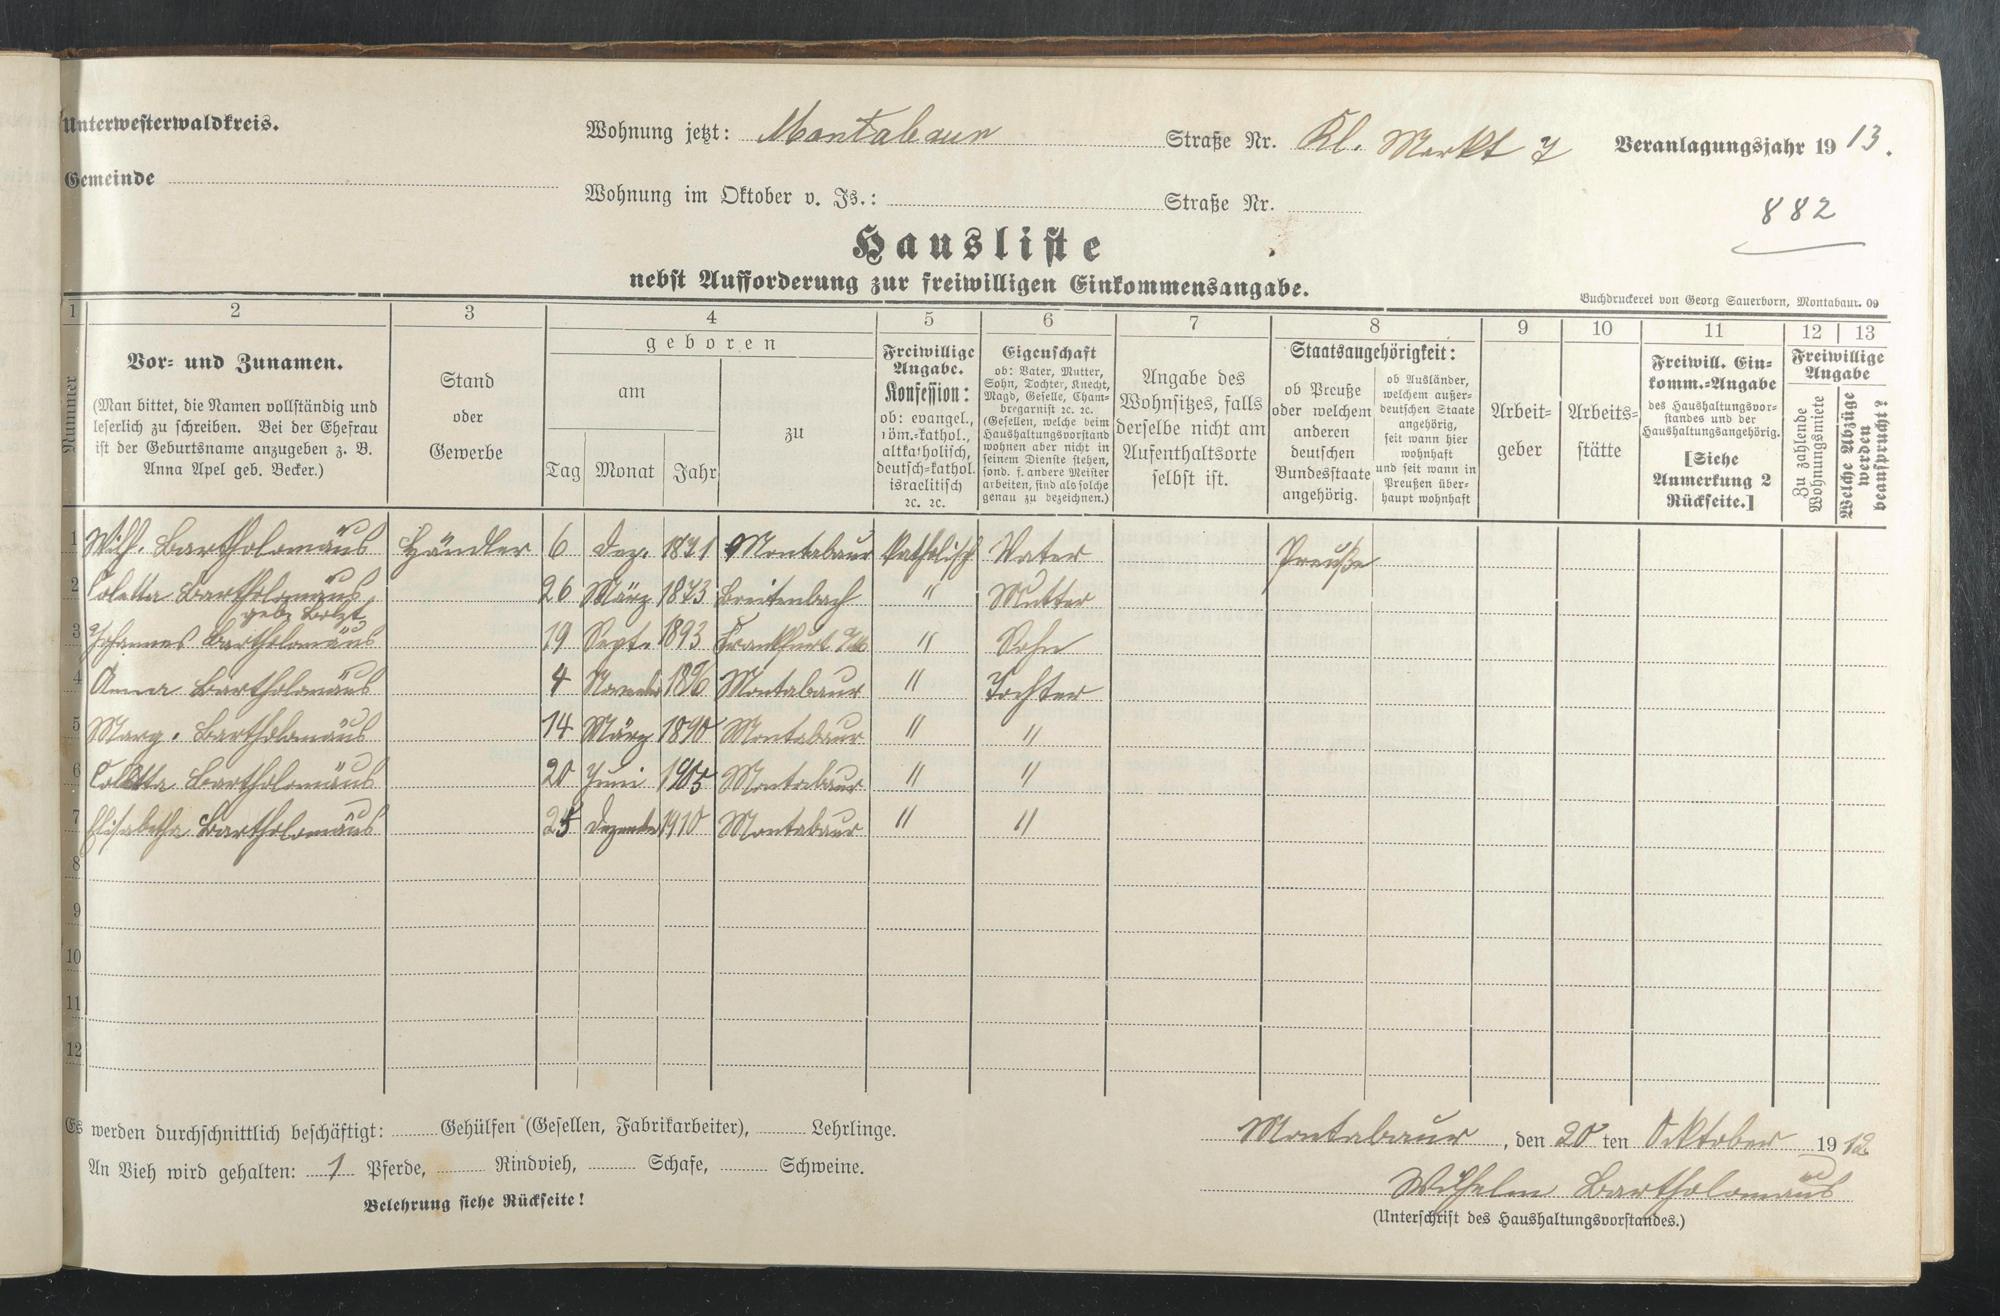 Unterwesterwaldkreis.
Wohnung jetzt: Montabaur Straße Nr. Kl. Markt 7 Veranlagungsjahr 1913.
Gemeinde
Wohnung im Oktober v. Js.: Straße Nr.
882
Hausliste
nebst Aufforderung zur freiwilligen Einkommensangabe.
Buchdruckerei von Georg Sauerborn, Montabaur. 09
1 2 3 4 5 6 7 8 9 10 11 12 13
Nummer
Vor- und Zunamen.
(Man bittet, die Namen vollständig und
leserlich zu schreiben. Bei der Ehefrau
ist der Geburtsname anzugeben z. B.
Anna Apel geb. Becker.)
Stand
oder
Gewerbe
geboren
am
Tag Monat Jahr
zu
Freiwillige
Angabe.
Konfession:
ob: evangel.,
röm.-kathol.,
altkatholisch,
deutsch-kathol.
israelitisch
ꝛc. ꝛc.
Eigenschaft
ob: Vater, Mutter,
Sohn, Tochter, Knecht,
Magd, Geselle, Cham-
bregarnist ꝛc. ꝛc.
(Gesellen, welche beim
Haushaltungsvorstand
wohnen aber nicht in
seinem Dienste stehen,
sond. f. andere Meister
arbeiten, sind als solche
genau zu bezeichnen.)
Angabe des
Wohnsitzes, falls
derselbe nicht am
Aufenthaltsorte
selbst ist.
Staatsangehörigkeit:
ob Preuße
oder welchem
anderen
deutschen
Bundesstaate
angehörig.
ob Ausländer,
welchem außer-
deutschen Staate
angehörig,
seit wann hier
wohnhaft
und seit wann in
Preußen über-
haupt wohnhaft
Arbeit-
geber
Arbeits-
stätte
Freiwill. Ein-
komm.-Angabe
des Haushaltungsvor-
standes und der
Haushaltungsangehörig.
[Siehe
Anmerkung 2
Rückseite.]
Freiwillige
Angabe
Zu zahlende
Wohnungsmiete
Welche Abzüge
werden
beansprucht?
1 Wilh. Bartholomäus Händler 6 Dez. 1871 Montabaur katholisch Vater Preuße
2 Coletta Bartholomäus 26 März 1873 Breitenbach " Mutter
geb.
3 Johannes Bartholomäus 19 Sept. 1893 Frankfurt " Sohn
4 Anna Bartholomäus 4 Montabaur " Tochter
5 Marg. Bartholomäus 14 März Montabaur " "
6 Coletta Bartholomäus 20 Juni 1905 Montabaur " "
7 Elisabetha Bartholomäus 25 Dezember 1910 Montabaur " "
8
9
10
11
12
Es werden durchschnittlich beschäftigt: Gehülfen (Gesellen, Fabrikarbeiter), Lehrlinge.
An Vieh wird gehalten: 1 Pferde, Rindvieh, Schafe, Schweine.
Belehrung siehe Rückseite!
Montabaur, den 20 ten Oktober 1912
Wilhelm Bartholomäus
(Unterschrift des Haushaltungsvorstandes.)